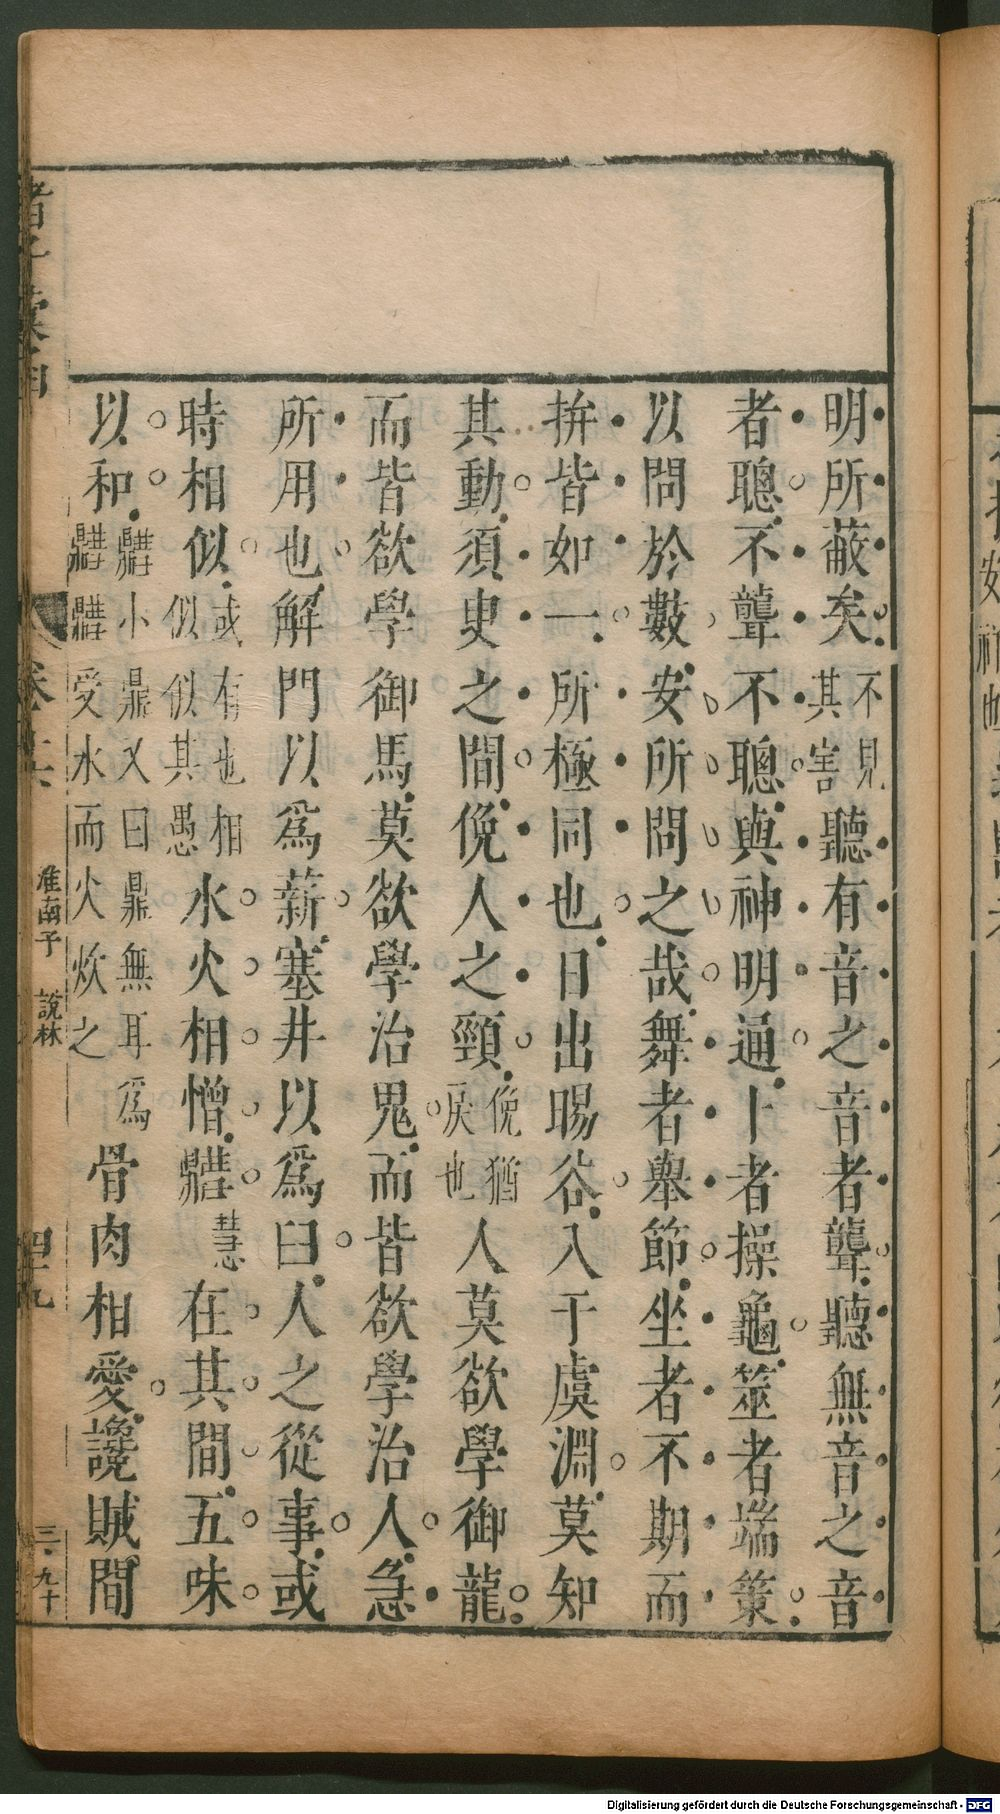 明所蔽矣不見其害聽有音之音者聾聽無音之音
者聰不聾不聰與神明通卜者操龜筮者端策
以問於數安所問之哉舞者舉節坐者不期而
拚皆如一所極同也日出暘谷入于虞淵莫知
其動須臾之間俛人之頸俛猶戾也人莫欲學御龍
而皆欲學御馬莫欲學治鬼而皆欲學治人急
所用也解門以為薪塞井以為臼人之從事或
時相似或有也相似似其愚水火相憎𨯳慧在其間五味
以和𨯳小鼎又曰鼎無耳為𨯳𨯳受水而火炊之骨肉相愛讒賊間
諸子彙函
卷十六
淮南子
說林
四十九
三·九十
Digitalisierung gefördert durch die Deutsche Forschungsgemeinschaft - DFG